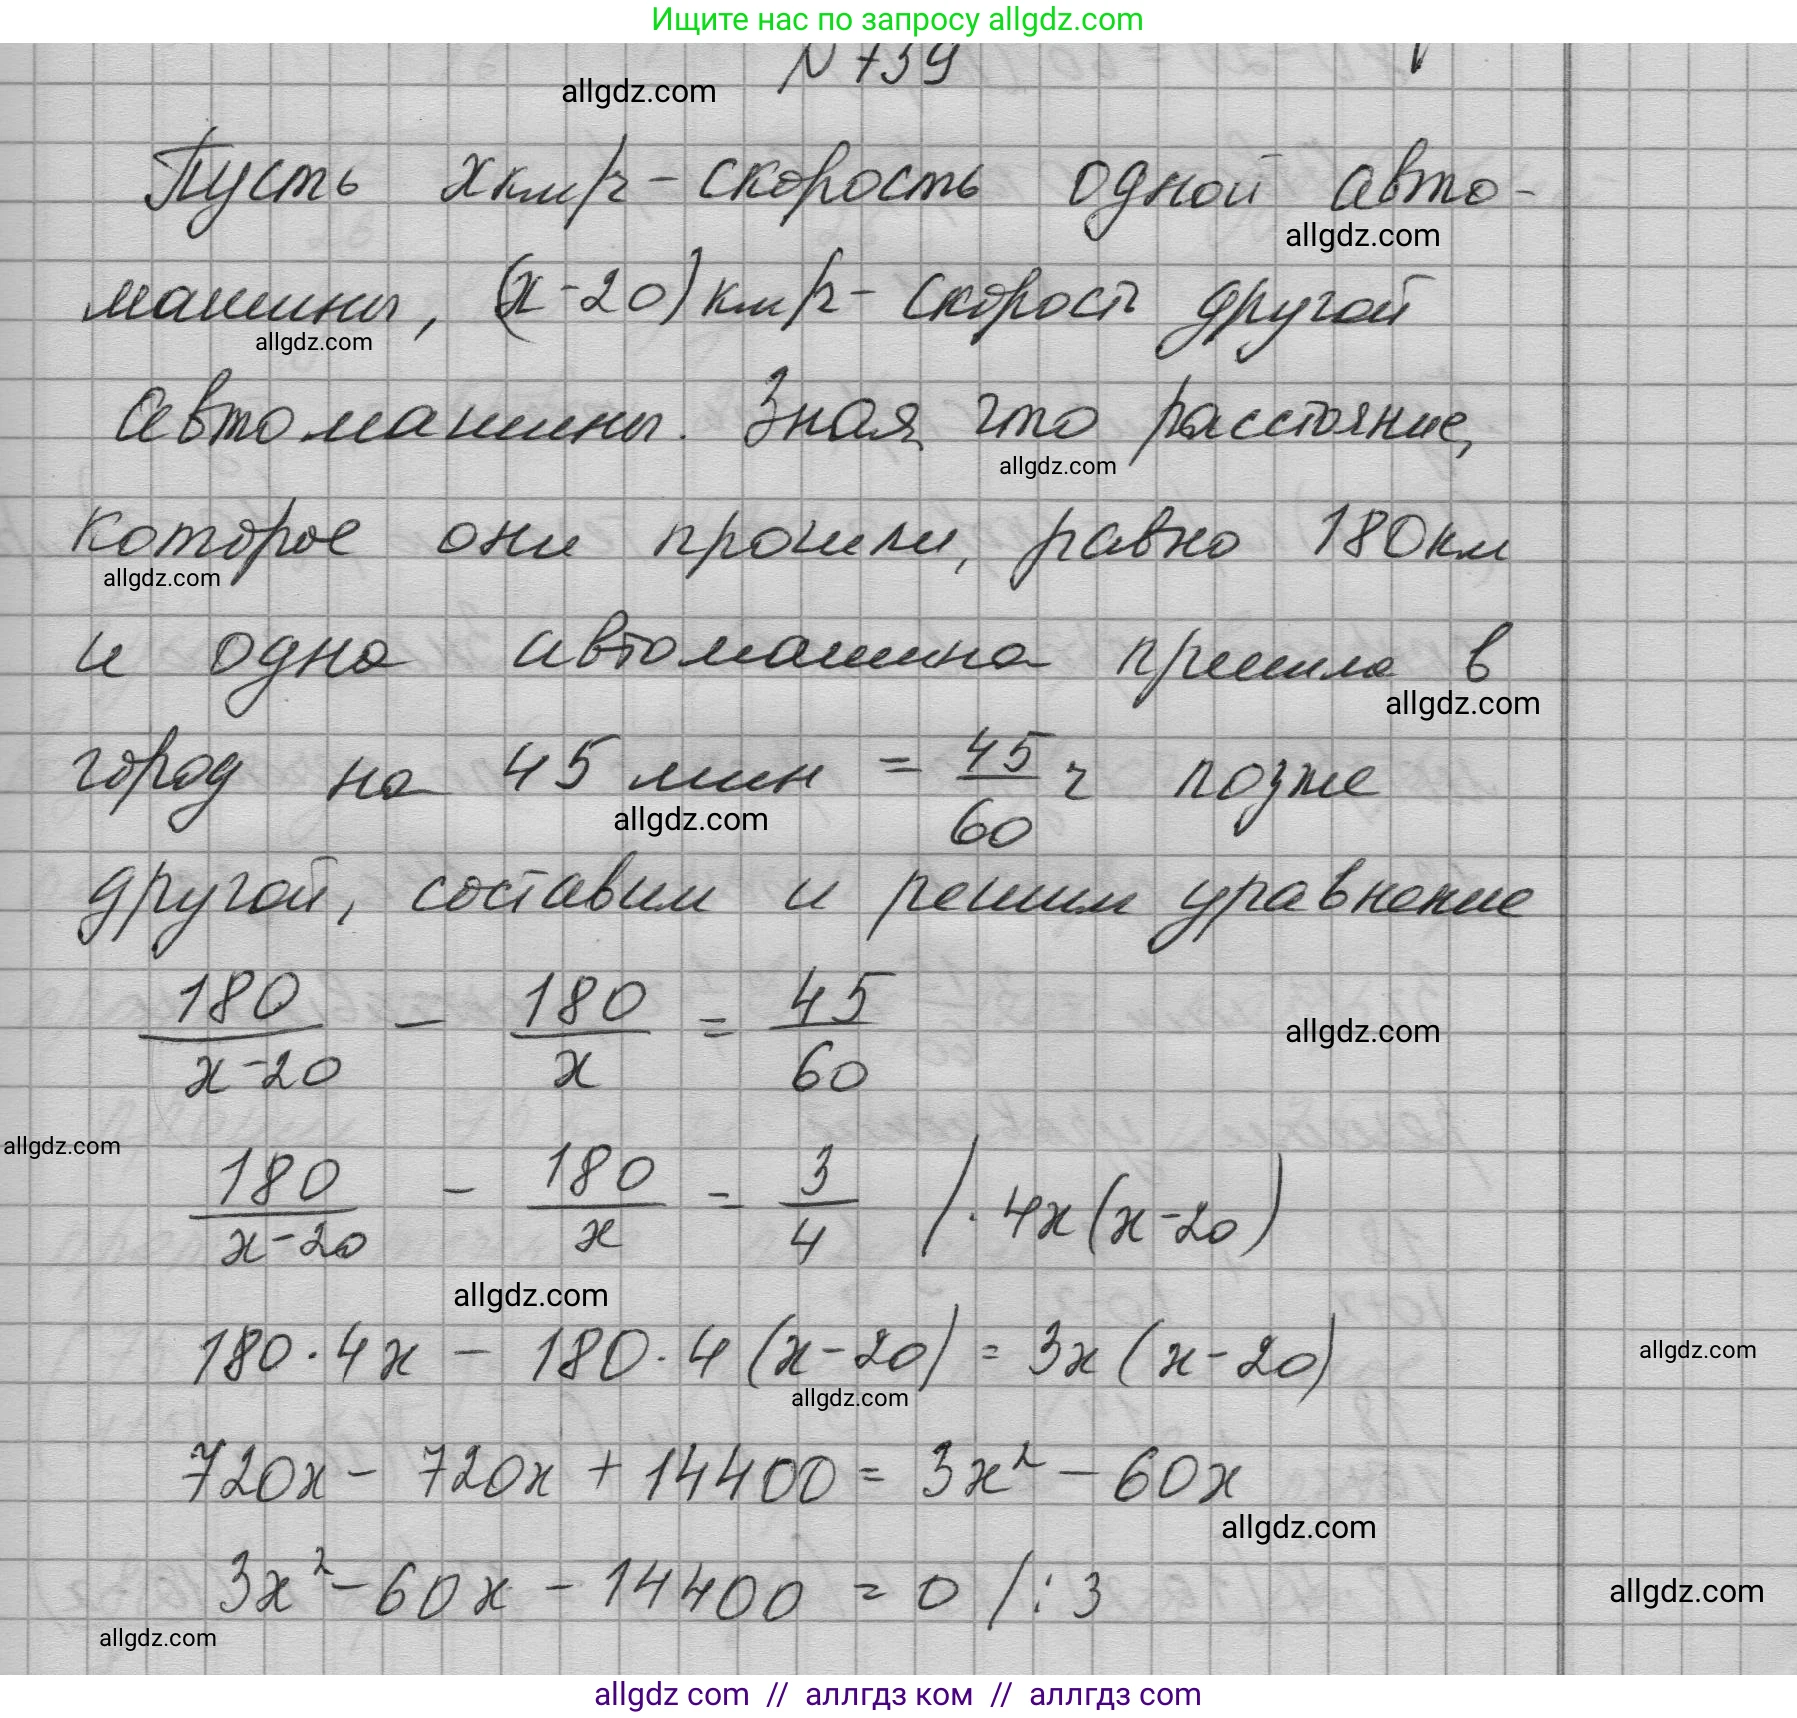 Ищите нас по запросу allgdz.com
N 739
allgdz.com
Пусть x км/ч - скорость одной авто-
allgdz.com
машины, (x-20) км/ч - скорость другой
allgdz.com
автомашины. Зная, что расстояние,
allgdz.com
которое они прошли, равно 180 км
allgdz.com
и одна автомашина пришла в
allgdz.com
город на 45 мин = 45/60 ч позже
allgdz.com
другой, составим и решим уравнение
180/(x-20) - 180/x = 45/60
allgdz.com
allgdz.com
180/(x-20) - 180/x = 3/4 /· 4x(x-20)
allgdz.com
180·4x - 180·4(x-20) = 3x(x-20)
allgdz.com
allgdz.com
720x - 720x + 14400 = 3x² - 60x
allgdz.com
3x² - 60x - 14400 = 0 /:3
allgdz.com
allgdz.com
allgdz com // аллгдз ком // аллгдз com